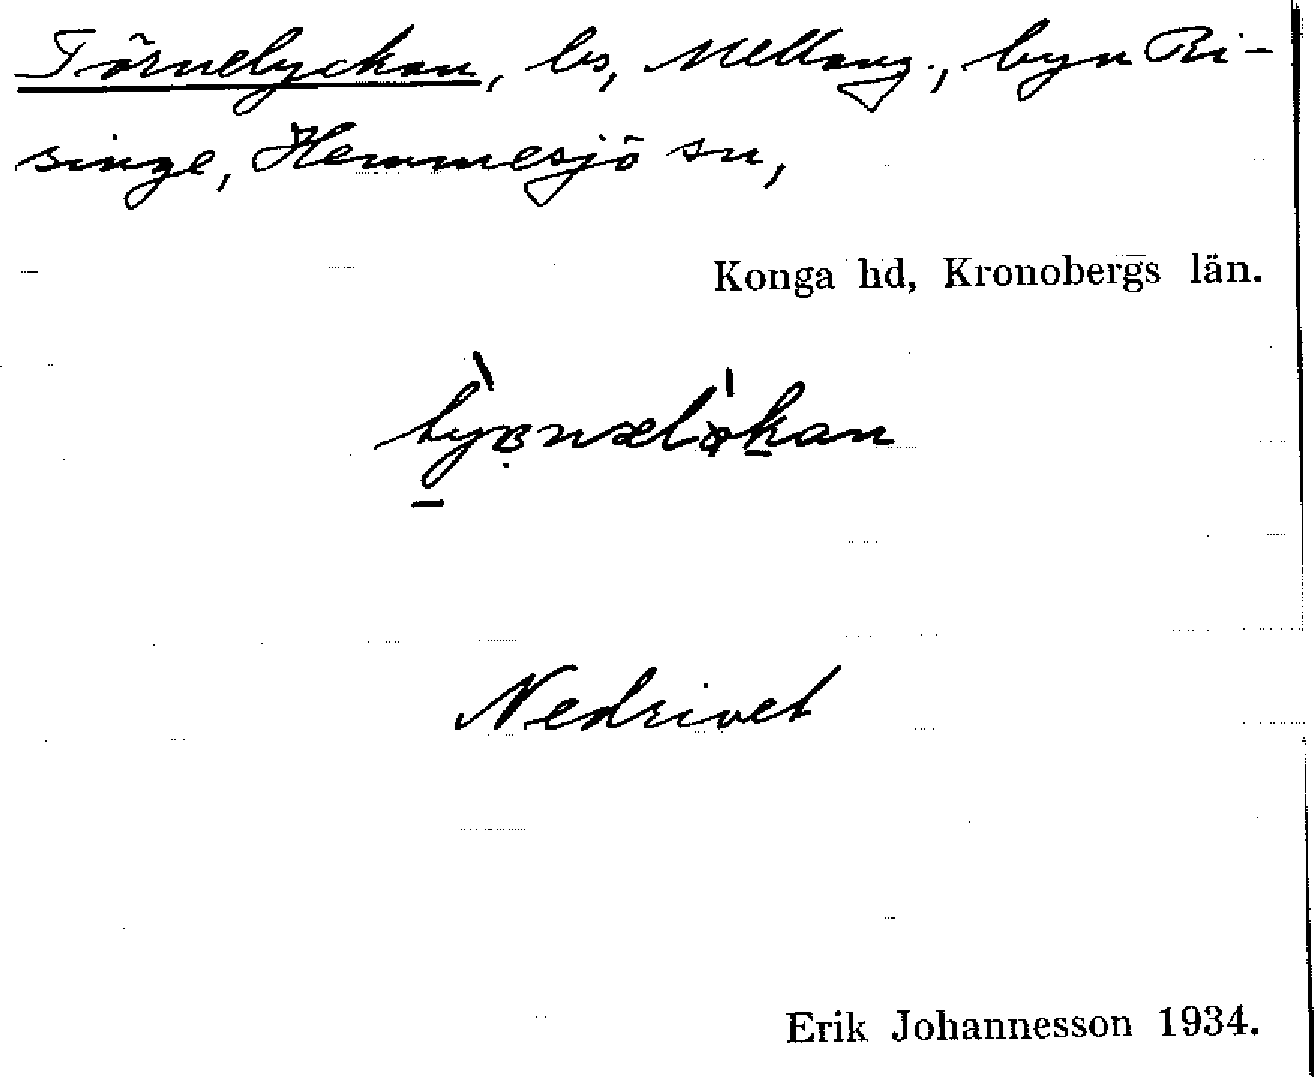 Törnelyckan, ls, Mellang., byn Ri-
singe, Hemmesjö sn,
Konga hd, Kronobergs län.
Nedrivet
Erik Johannesson 1934.